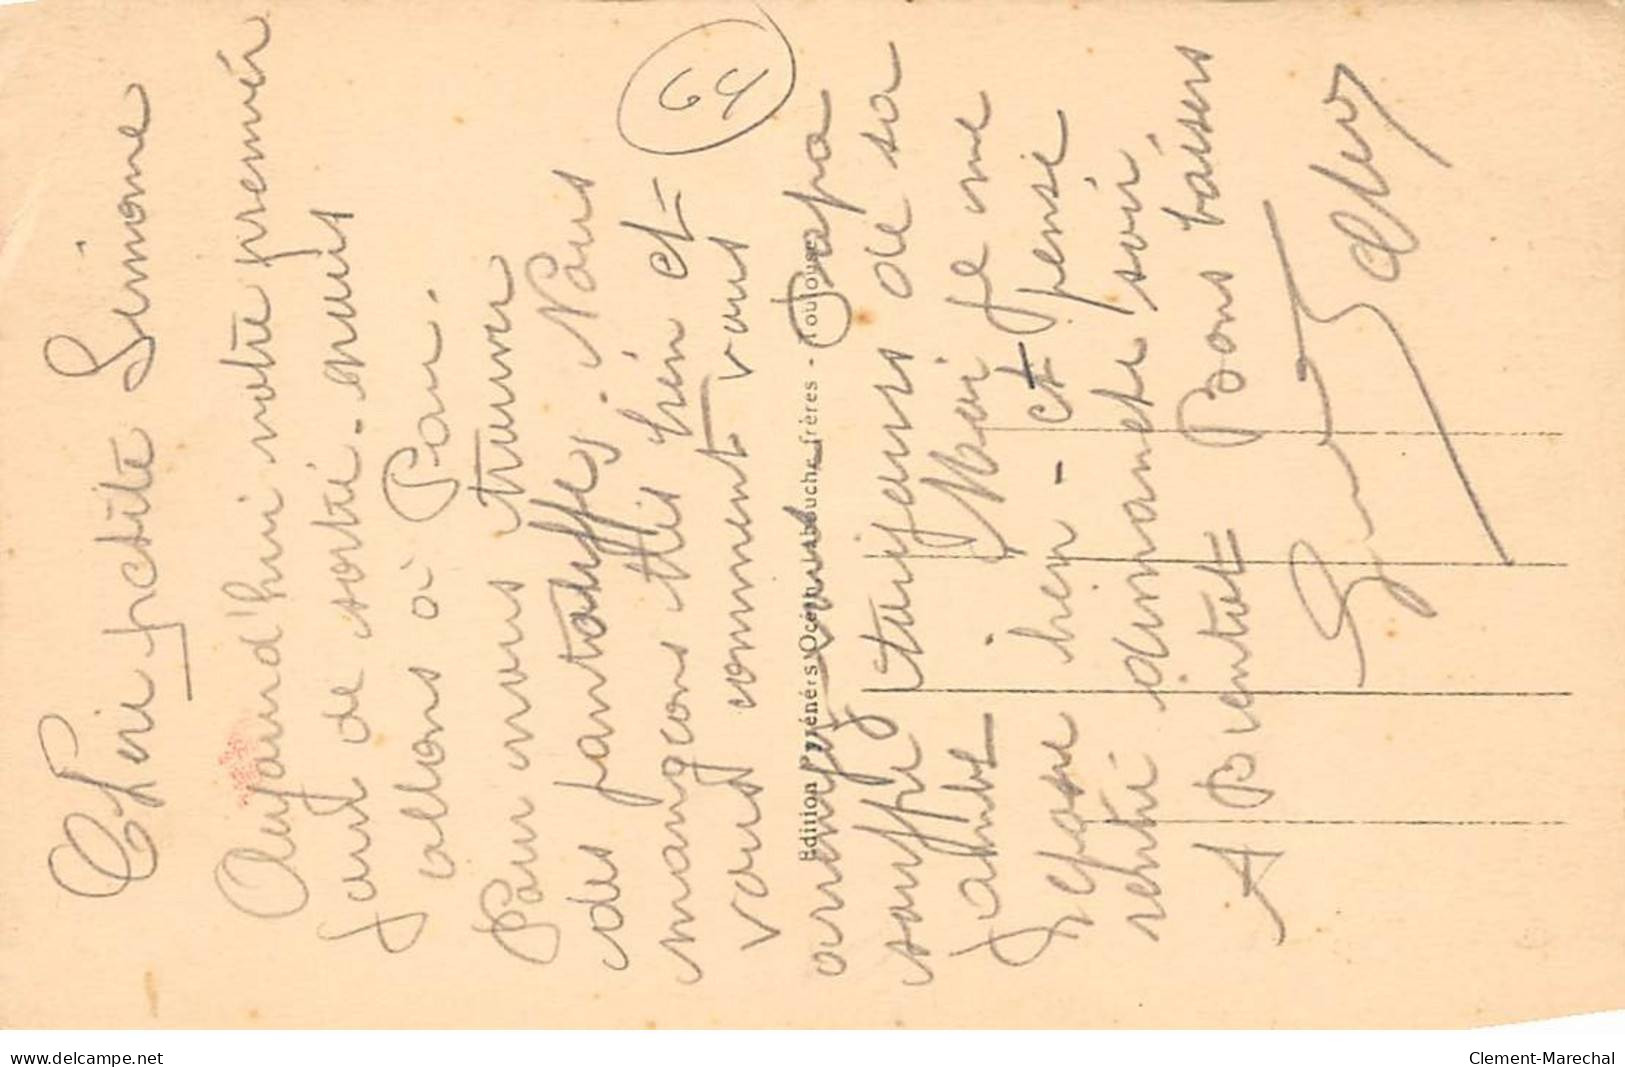 Chère petite Simone
Aujourd'hui notre premier
jour de sortie. nous
allons à Pau.
Pour nous trouver
des pantouffles. Nous
mangeons très bien et
vous comment vous
arrangez vous Papa
souffre toujours de sa
jambe. Moi je me
repose bien - et pense
rentré dimanche soir
A Bientot Bons baisers
64
Édition Pyrénées Océan Labouche frères - Toulouse
www.delcampe.net
Clement-Marechal